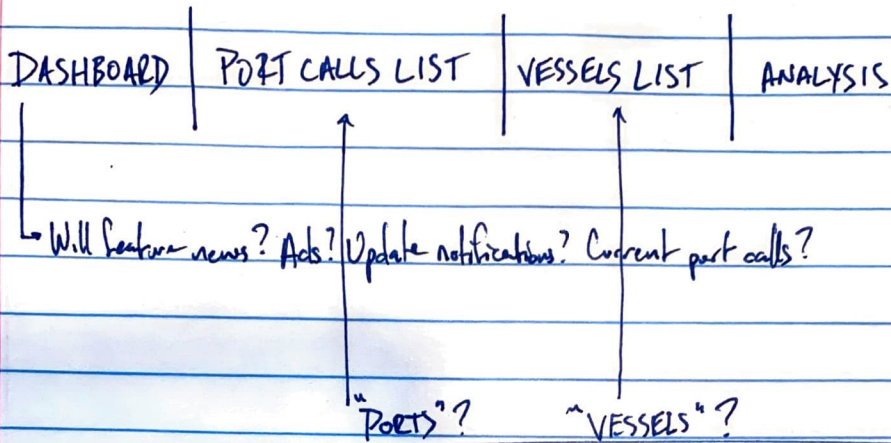 DASHBOARD PORT CALLS LIST VESSELS LIST ANALYSIS
Will feature news? Ads? Update notifications? Current port calls?
"PORTS"? "VESSELS"?